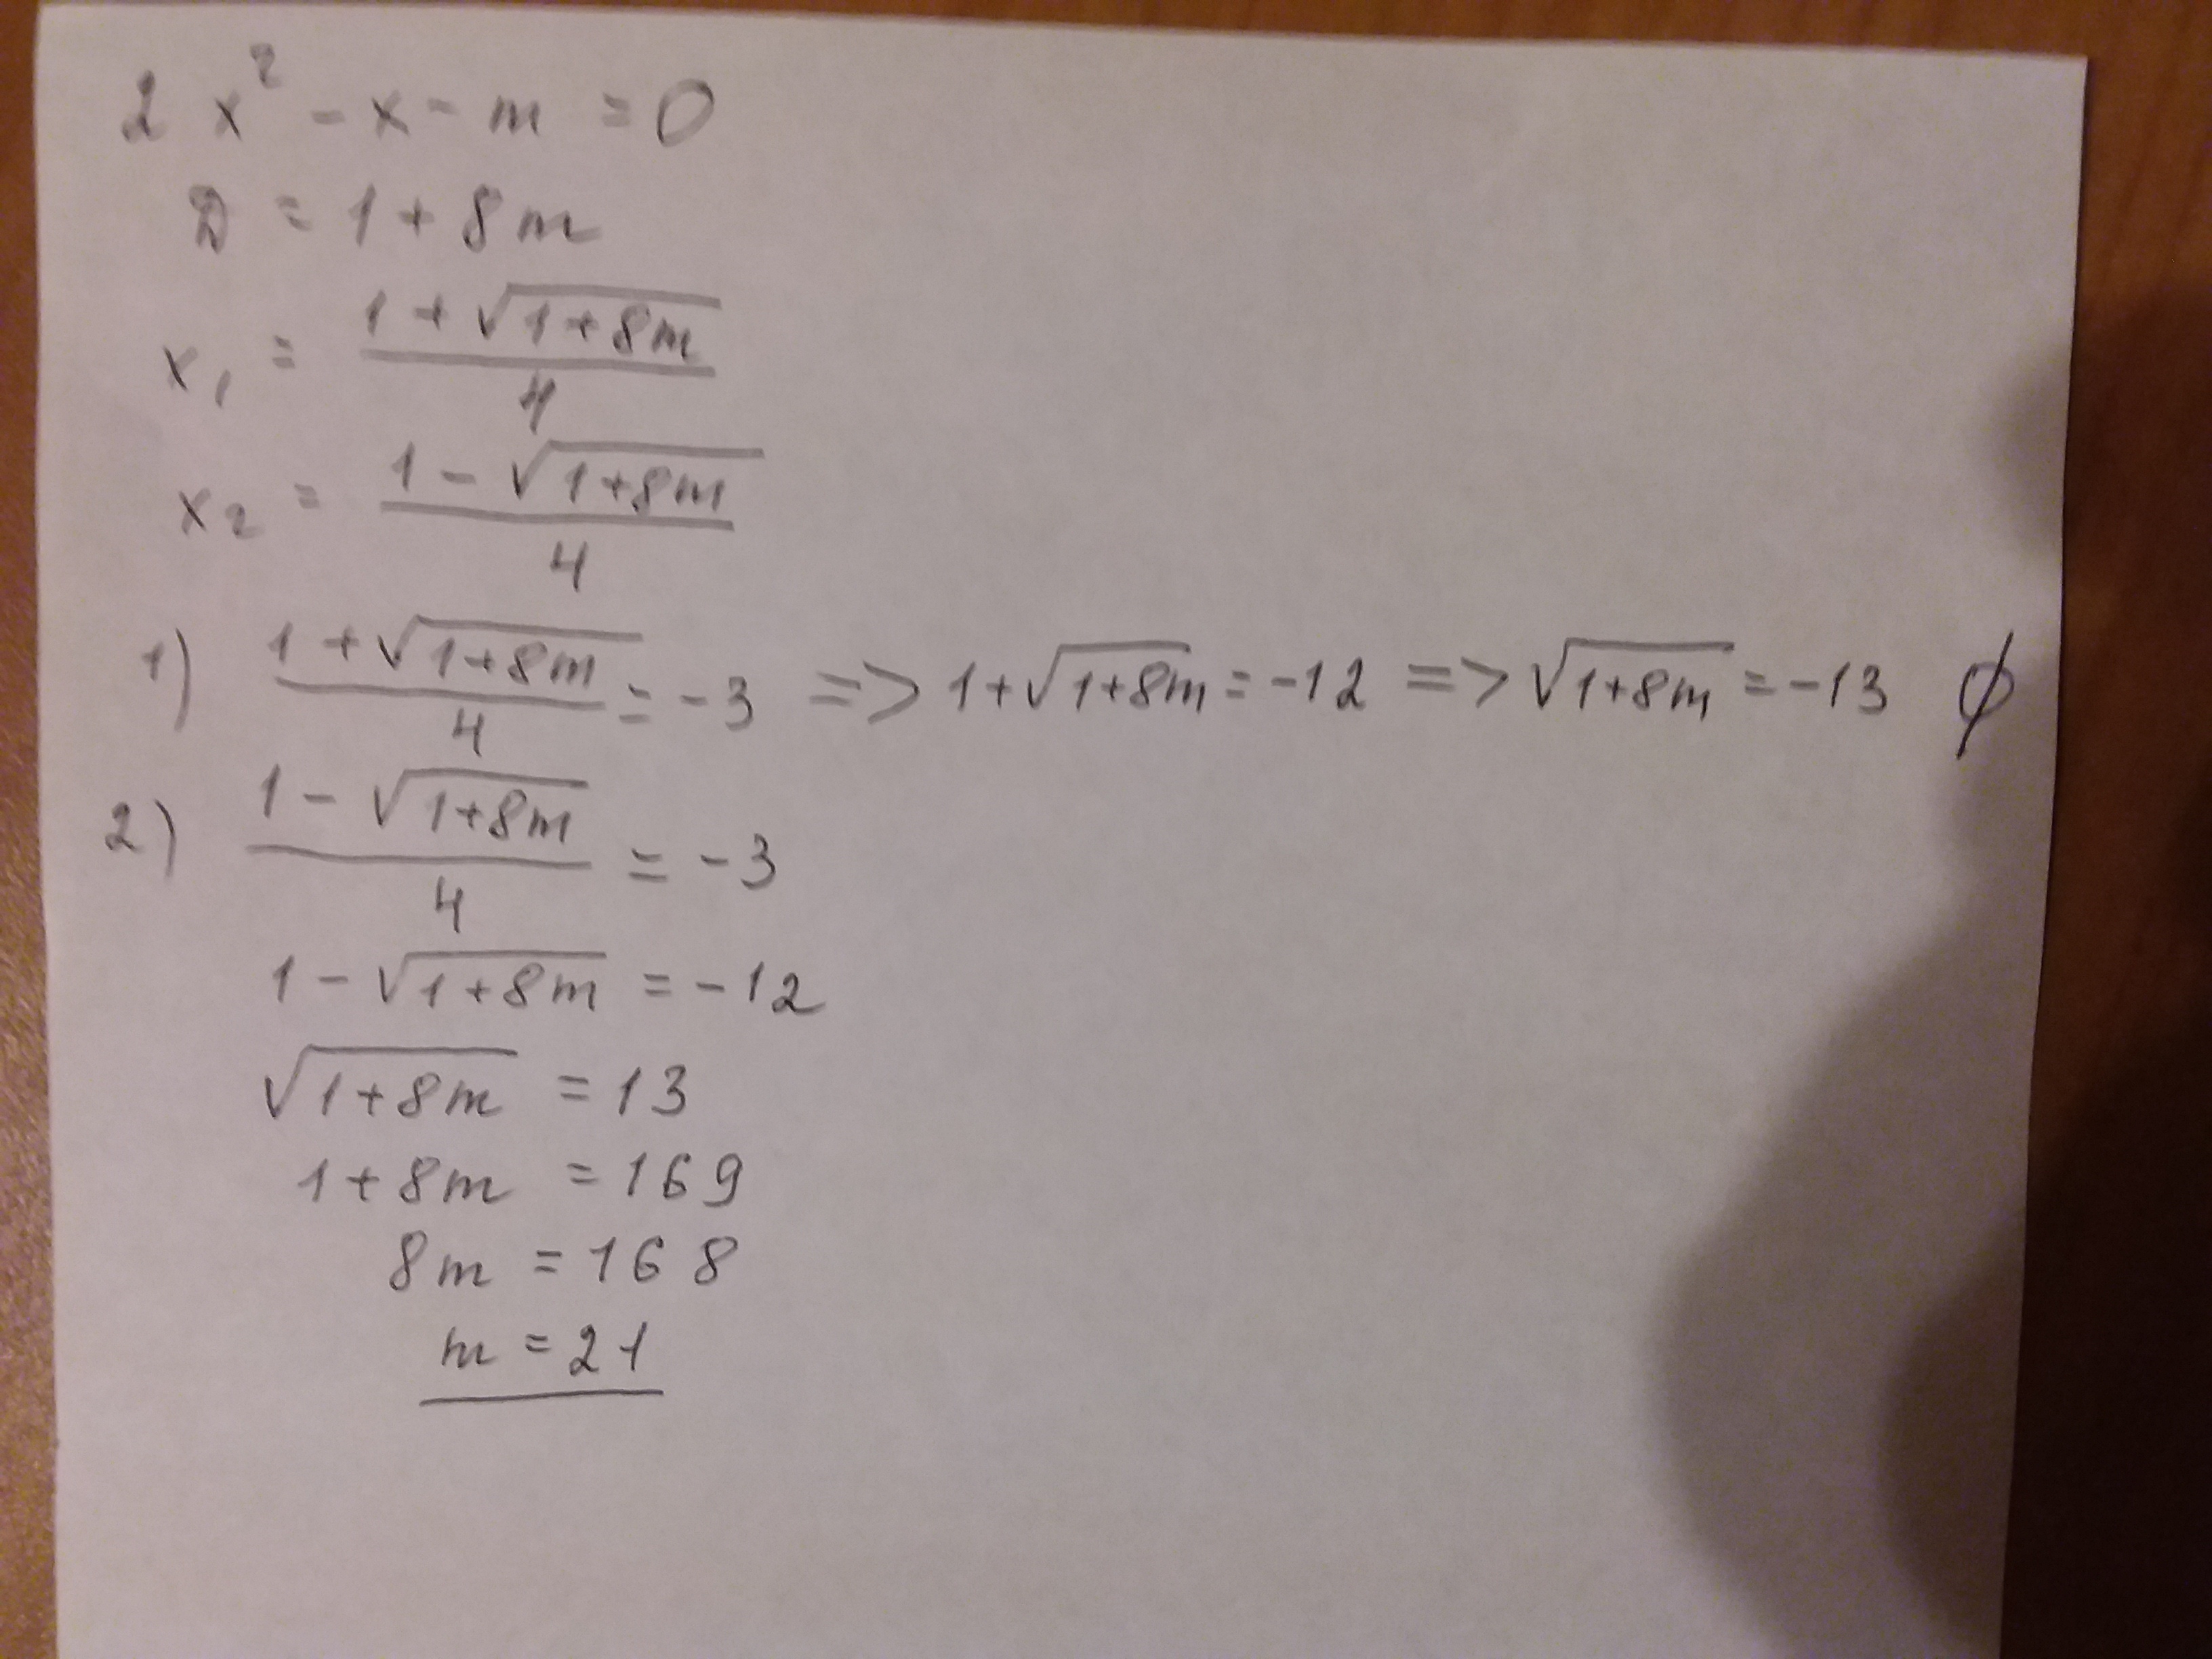 2x² - x - m = 0
D = 1 + 8m
x₁ = (1 + √(1+8m))/4
x₂ = (1 - √(1+8m))/4
1) (1 + √(1+8m))/4 = -3 => 1+√(1+8m) = -12 => √(1+8m) = -13 ∅
2) (1 - √(1+8m))/4 = -3
1 - √(1+8m) = -12
√(1+8m) = 13
1+8m = 169
8m = 168
m = 21